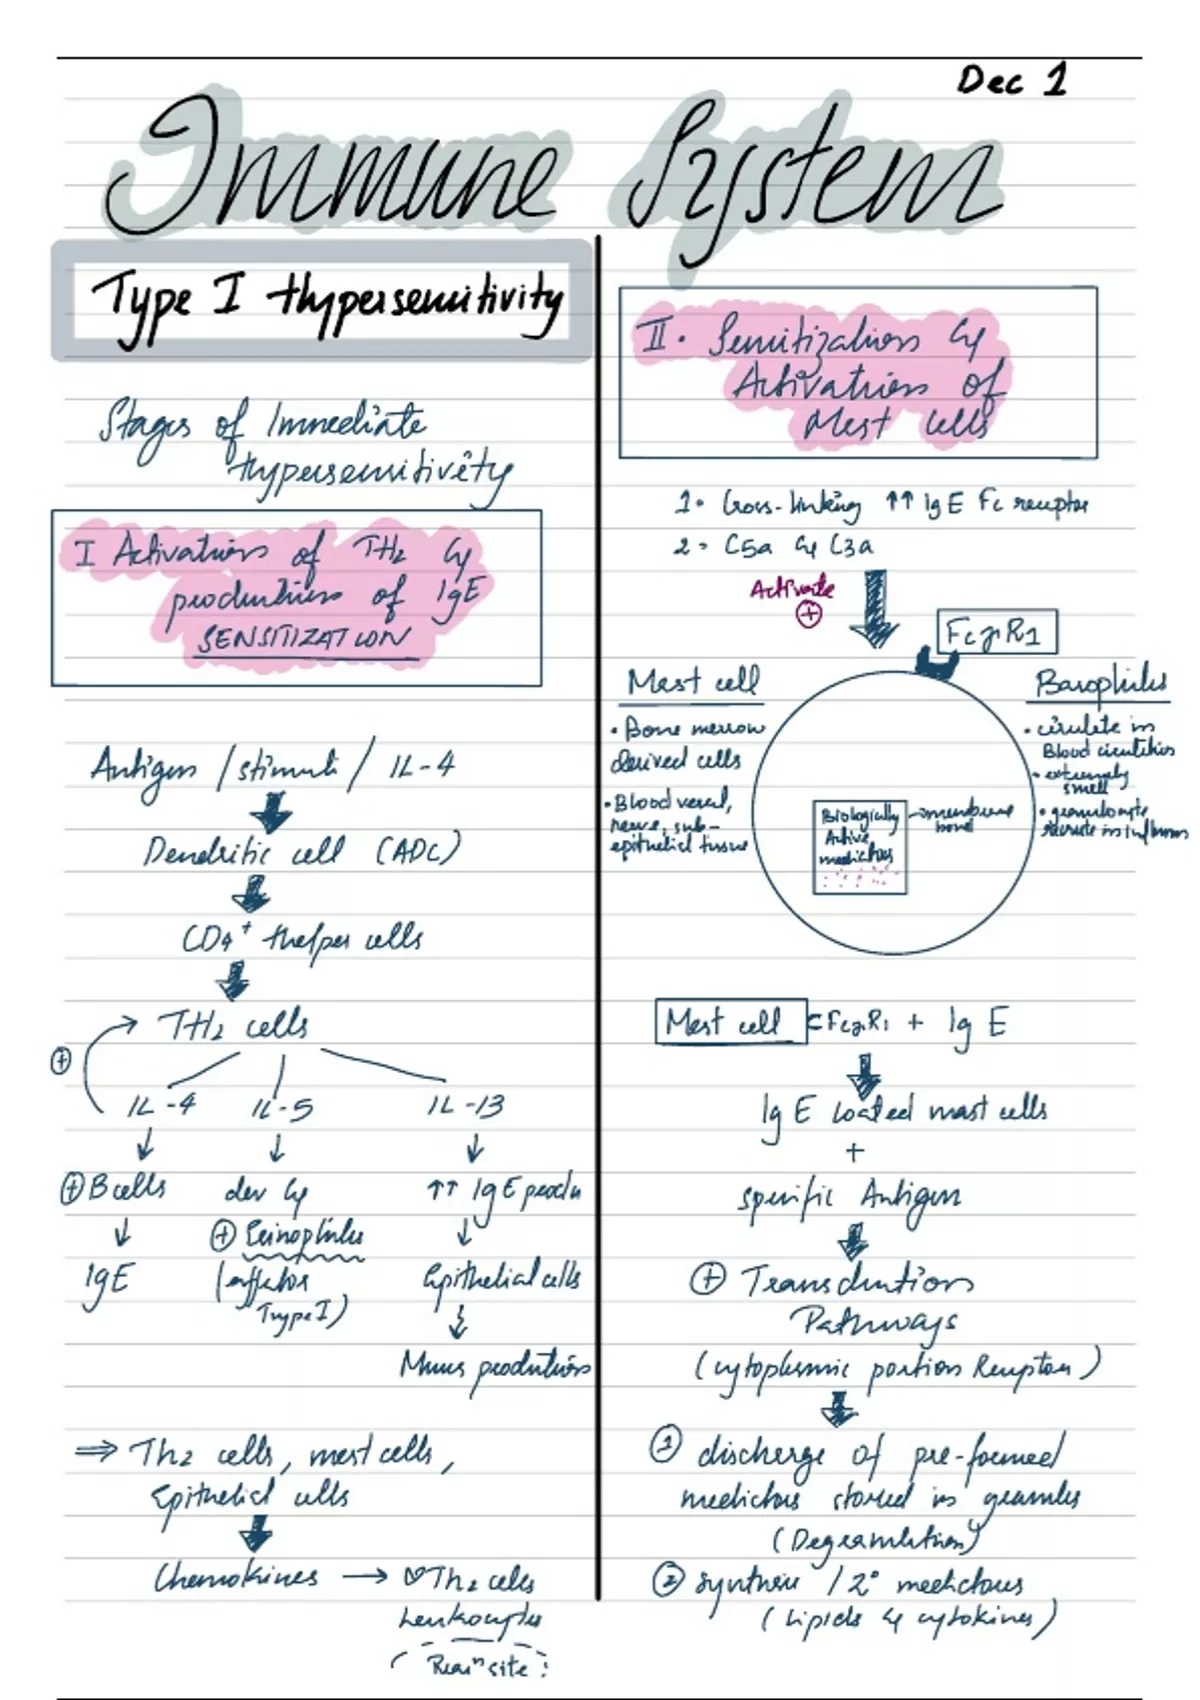 Dec 1
Immune System
Type I Hypersensitivity
Stages of Immediate
Hypersensitivity
I Activation of TH2 &
production of IgE
SENSITIZATION
Antigen / stimuli / IL-4
Dendritic cell (ADC)
CD4+ thelper cells
TH2 cells
+
IL-4 IL-5 IL-13
+ B cells dev & ↑↑ IgE produ
IgE + Eosinophils Epithelial cells
(effector
Type I)
Mucus production
⇒ Th2 cells, mast cells,
Epithelial cells
Chemokines → Th2 cells
Leukocytes
(Reacn site)
II. Sensitization &
Activation of
Mast cells
1. Cross-linking ↑↑ IgE Fc receptor
2. C5a & C3a
Activate
+
FcεR1
Mast cell
• Bone merrow
derived cells
• Blood vessel,
nerve, sub-
epithelial tissue
Biologically
Active
mediators
membrane
bound
Basophils
• circulate in
Blood circulation
• extremely
small
• granulocyte
recruite in inflamm
Mast cell FcεR1 + IgE
IgE loaded mast cells
+
specific Antigen
+ Transduction
Pathways
(cytoplasmic portion Receptor)
1 discharge of pre-formed
mediators stored in granules
(Degranulation)
2 synthesis / 2° mediators
(Lipids & cytokines)